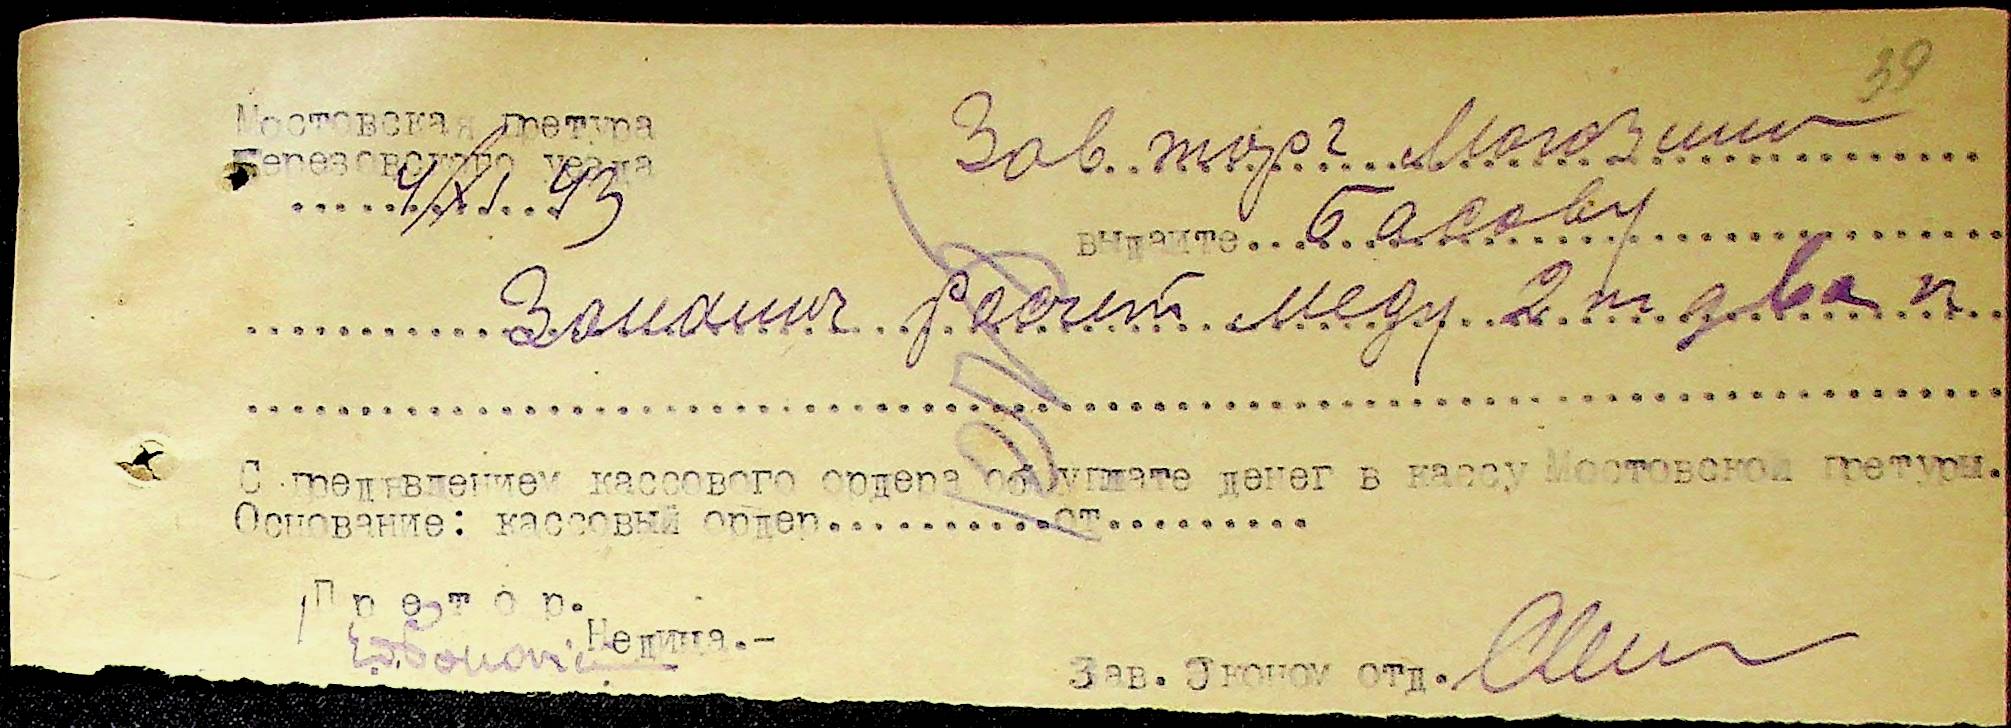 39
Мостовская претура
Березовского уезда
4/XI 43
Зав. торг Могозину
выдайте Басову
расчет меду 2 т два п
С предявлением кассового ордера об уплате денег в кассу Мостовской претуры.
Основание: кассовый ордер...........от..........
Претор.
Недица.-
Зав. Эконом отд.